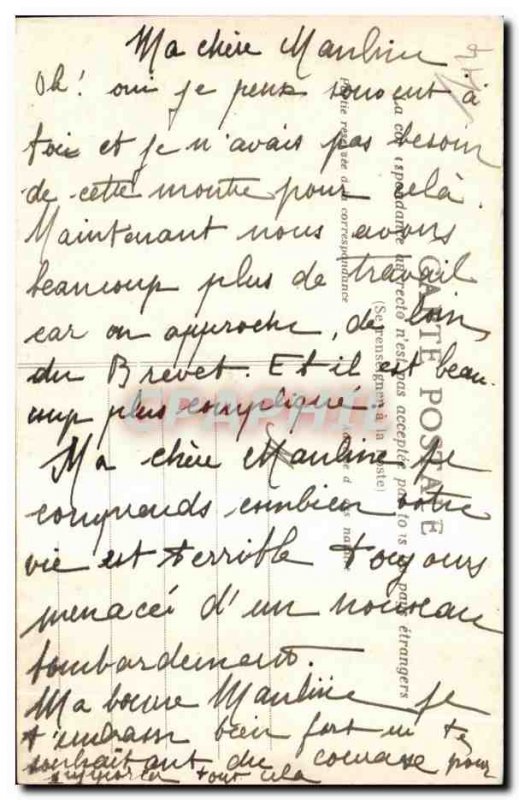 Ma chère Mauline
Oh! oui je pense souvent à
toi et je n'avais pas besoin
de cette montre pour cela.
Maintenant nous avons
beaucoup plus de travail
car on approche, de loin,
du Brevet. Et il est beau-
coup plus compliqué.
Ma chère Mauline je
comprends combien votre
vie est terrible toujours
menacée d'un nouveau
bombardement.
Ma bonne Mauline je
t'embrasse bien fort en te
souhaitant du courage pour
supporter tout cela
CARTE POSTALE
La correspondance au recto n'est pas acceptée par tous les pays étrangers
(Se renseigner à la Poste)
Partie réservée à la correspondance